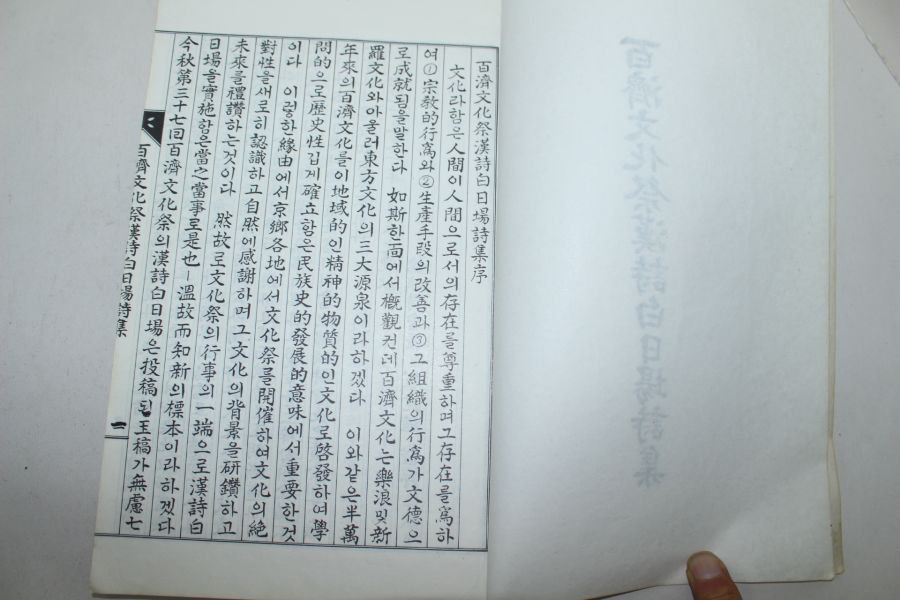 百濟文化祭漢詩白日場詩集
百濟文化祭漢詩白日場詩集序
文化라함은人間이人間으로서의存在를尊重하며그存在를爲하
여①宗敎的行爲와②生產手段의改善과③그組織의行爲가文德으
로成就됨을말한다 如斯한面에서槪觀컨데百濟文化는樂浪및新
羅文化와아울러東方文化의三大源泉이라하겠다 이와같은半萬
年來의百濟文化를이地域的인精神的物質的인文化로啓發하여學
問的으로歷史性깊게確立함은民族史的發展的意味에서重要한것
이다 이렇한緣由에서京鄕各地에서文化祭를開催하여文化의絶
對性을새로히認識하고自然에感謝하며그文化의背景을硏鑽하고
未來를禮讚하는것이다 然故로文化祭의行事의一端으로漢詩白
日場을實施함은當之當事로是也−溫故而知新의標本이라하겠다
今秋第三十七回百濟文化祭의漢詩白日場은投稿된玉稿가無慮七
百濟文化祭漢詩白日場詩集